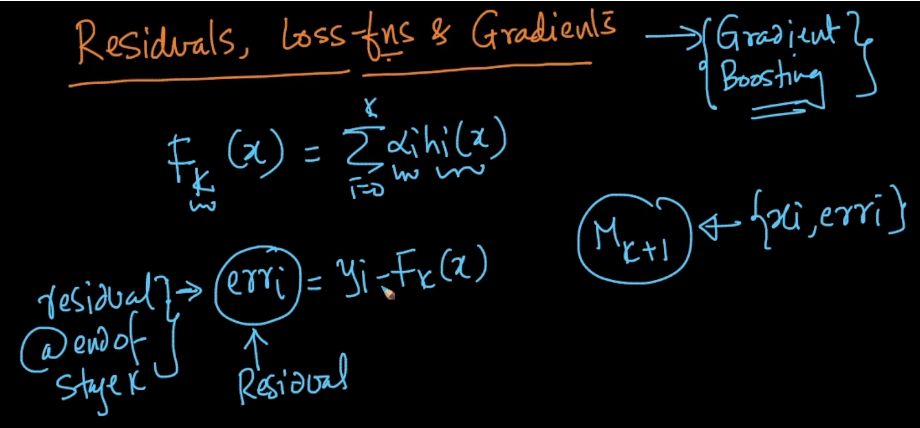 Residuals, Loss-fns & Gradients → { Gradient Boosting }
F_k (x) = Σ_{i=0}^{k} α_i h_i(x)
M_{k+1} ← {x_i, err_i}
residual } → err_i = y_i - F_k(x)
@ end of
stage k
↑
Residual